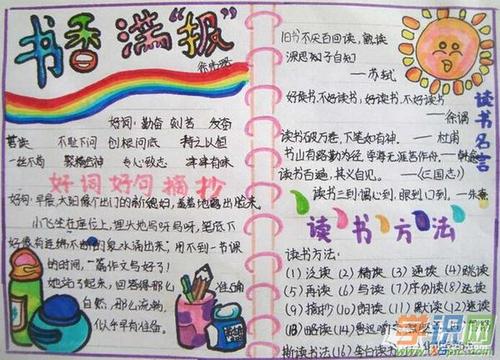 书香满“报”
好词：勤奋 刻苦 发奋
不耻下问 创根问底 持之以恒
一丝不苟 聚精会神 专心致志 津津有味
好词好句摘抄
好句：早晨，太阳像不出门的新媳妇，羞羞地露出脸来。
小飞坐在座位上，埋头地写呀写呀，笔底下
好像有连绵不断的泉水涌出来，用不到一节课
的时间，一篇作文写好了！
她站了起来，回答得那么准确
自然，那么流畅，
似乎早有准备。
旧书不厌百回读，熟读
深思子自知
——苏轼
好读书，不好读书；好读书，不好读书
——徐渭
读书破万卷，下笔如有神。——杜甫
书山有路勤为径，学海无涯苦作舟。——韩愈
读书百遍，其义自见。《三国志》
读书三到：心到，眼到，口到。——朱熹
读书名言
读书方法
读书方法：
(1)泛读 (2)精读 (3)通读 (4)跳读
(5)再读 (6)写读 (7)序例读 (8)选读
(9)摘抄 (10)朗读 (11)默读 (12)速读
(13)略读
学识网